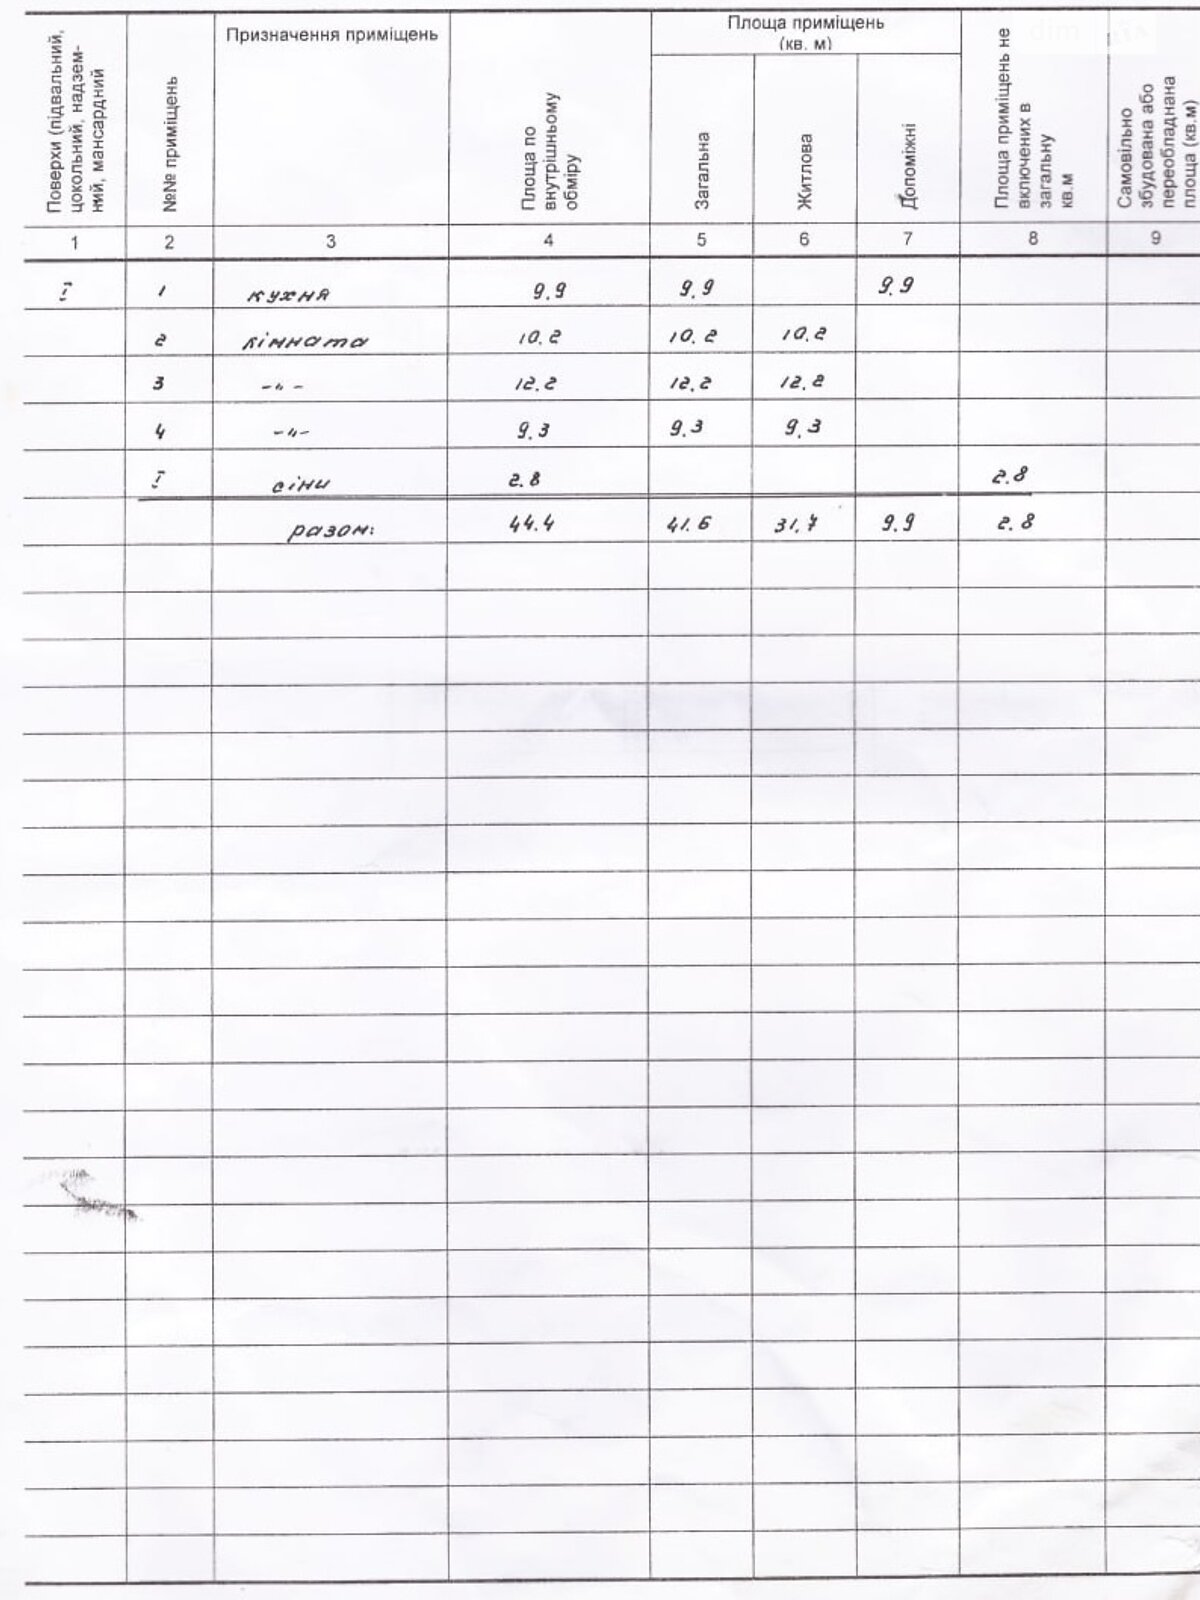 Поверхи (підвальний,
цокольний, надзем-
ний, мансардний
№№ приміщень
Призначення приміщень
Площа по
внутрішньому
обміру
Площа приміщень
(кв. м)
Загальна
Житлова
Допоміжні
Площа приміщень не
включених в
загальну
кв.м
Самовільно
збудована або
переобладнана
площа (кв.м)
1 2 3 4 5 6 7 8 9
I 1 кухня 9.9 9.9 9.9
2 кімната 10.2 10.2 10.2
3 -"- 12.2 12.2 12.2
4 -"- 9.3 9.3 9.3
I сіни 2.8 2.8
разом: 44.4 41.6 31.7 9.9 2.8
dim